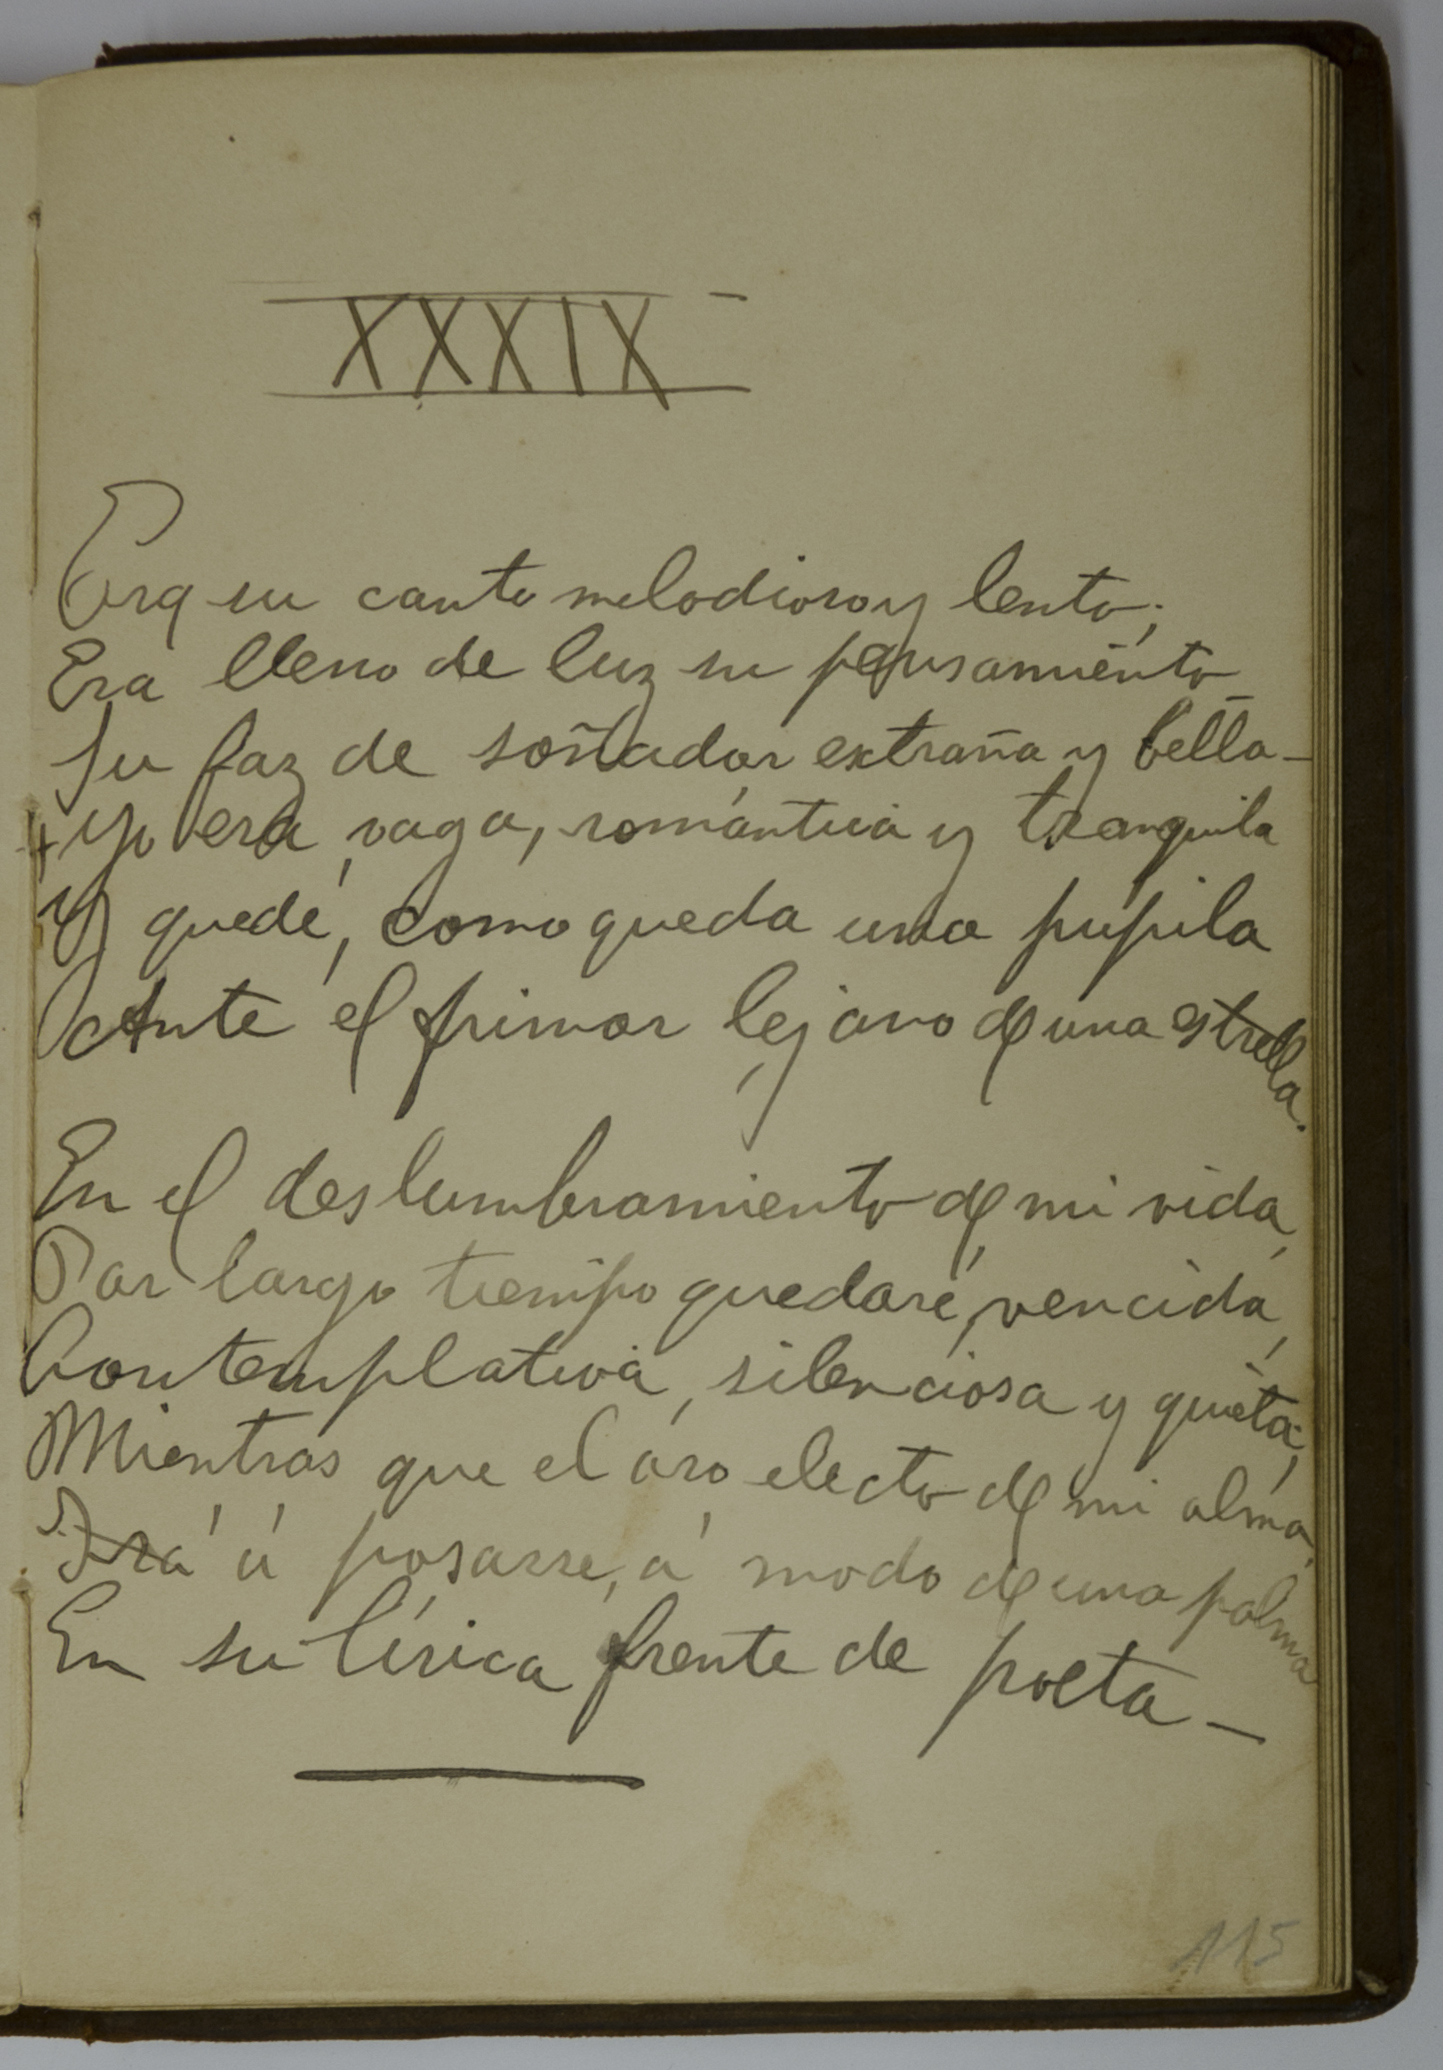 XXXIX
Era su canto melodioso y lento;
Era lleno de luz su pensamiento
Su faz de soñador extraña y bella -
+ Yo era vaga, romántica y tranquila
Y quedé, como queda una pupila
Ante el primor lejano de una estrella.
En el deslumbramiento de mi vida,
Por largo tiempo quedaré, vencida,
Contemplativa, silenciosa y quieta;
Mientras que el áro electo de mi alma,
Irá á posarse, á modo de una palma
En su lírica frente de poeta -
115